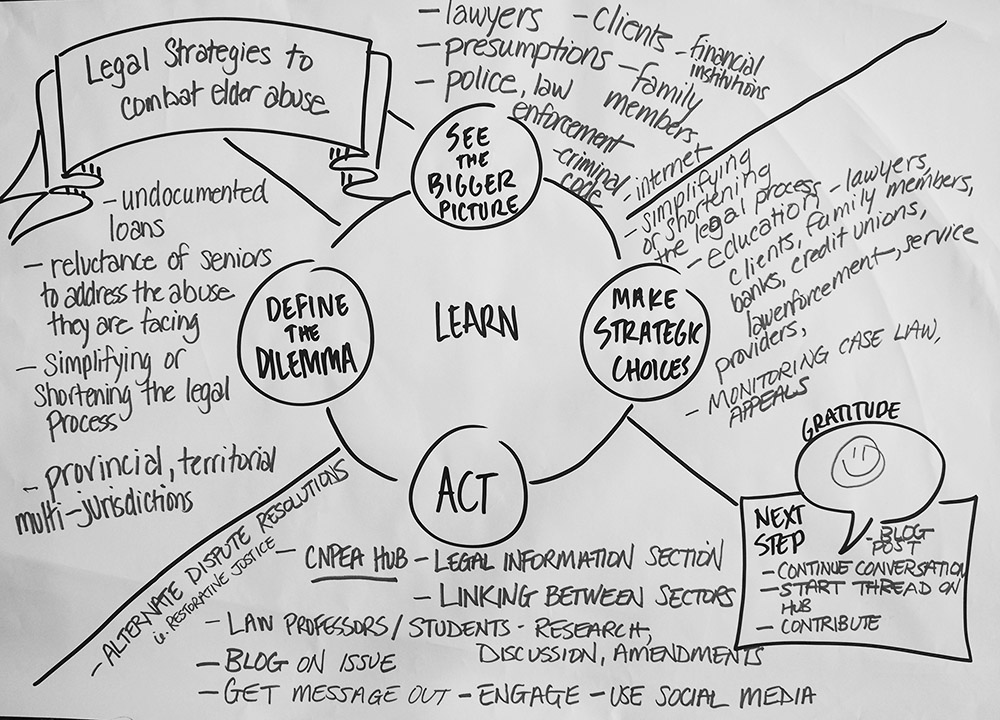 Legal Strategies to
combat elder abuse
- lawyers
- presumptions
- police, law
enforcement
- criminal
code
- clients
- family
members
- financial
institutions
- internet
SEE
THE
BIGGER
PICTURE
- undocumented
loans
- reluctance of seniors
to address the abuse
they are facing
- Simplifying or
Shortening the legal
Process
- provincial, territorial
multi-jurisdictions
DEFINE
THE
DILEMMA
LEARN
MAKE
STRATEGIC
CHOICES
- simplifying
or shortening
the legal process
- education - lawyers,
clients, family members,
banks, credit unions,
law enforcement, service
providers,
- MONITORING CASE LAW,
APPEALS
ACT
- ALTERNATE DISPUTE RESOLUTIONS
i.e. RESTORATIVE JUSTICE
- CNPEA HUB - LEGAL INFORMATION SECTION
- LINKING BETWEEN SECTORS
- LAW PROFESSORS / STUDENTS - RESEARCH,
DISCUSSION, AMENDMENTS
- BLOG ON ISSUE
- GET MESSAGE OUT - ENGAGE - USE SOCIAL MEDIA
GRATITUDE
NEXT
STEP
- BLOG
POST
- CONTINUE CONVERSATION
- START THREAD ON
HUB
- CONTRIBUTE